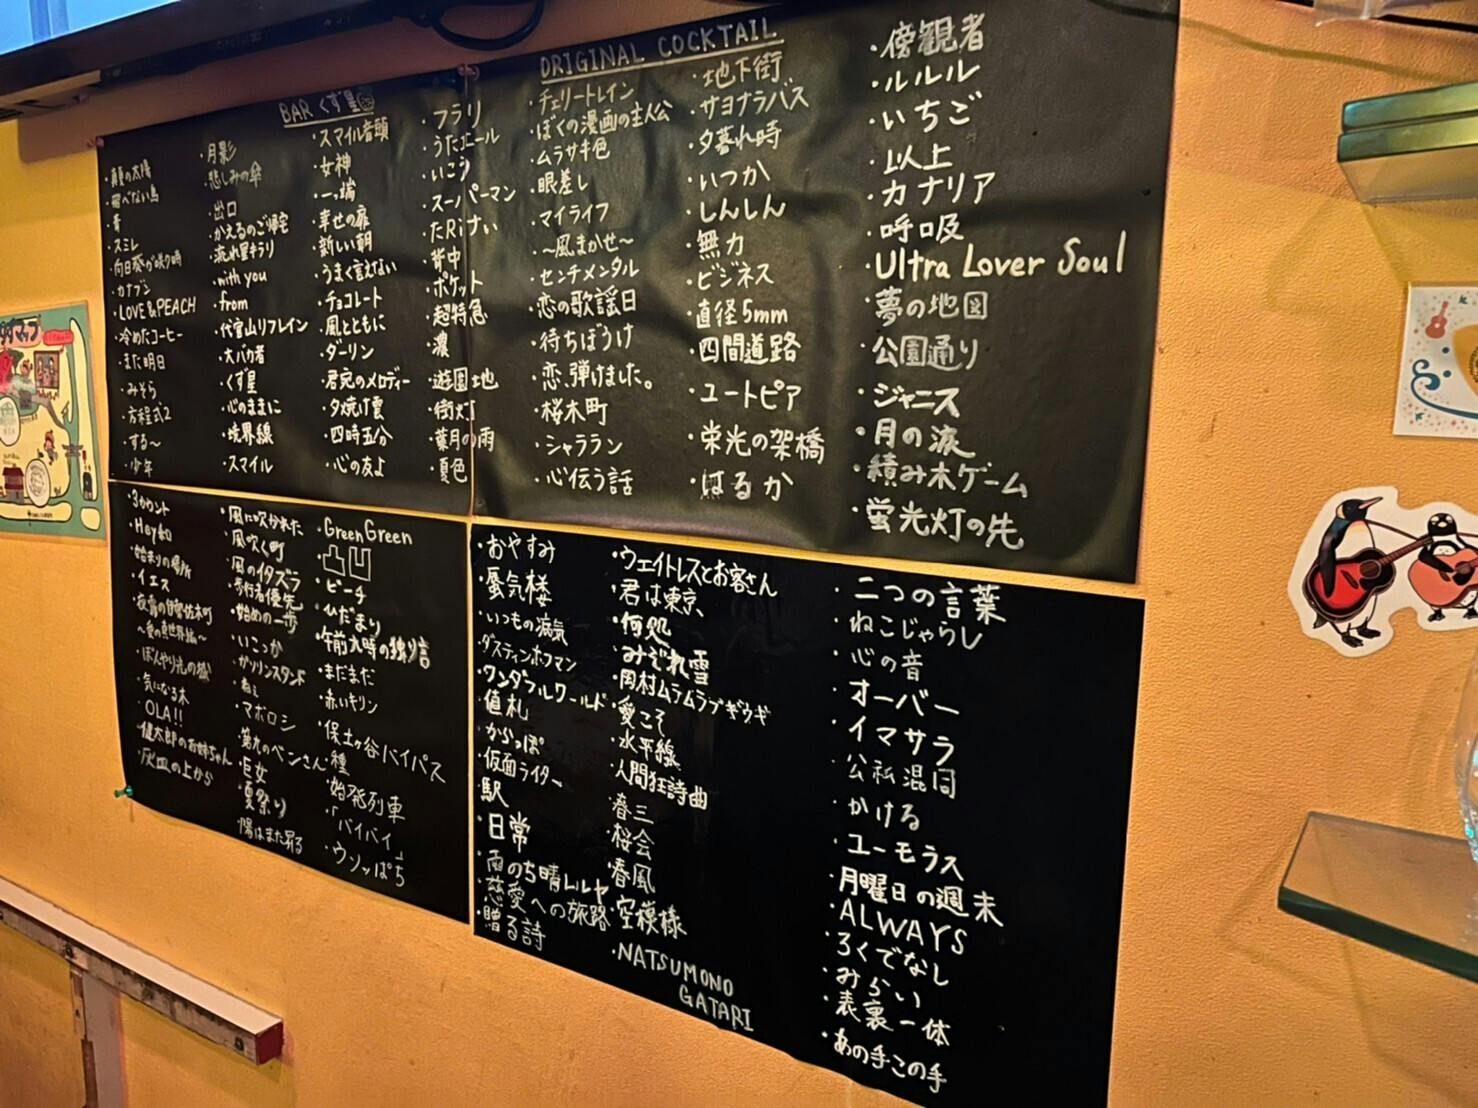 BAR くず星
ORIGINAL COCKTAIL
・真夏の太陽
・飛べない鳥
・青
・スミレ
・向日葵が咲く時
・カナブン
・LOVE&PEACH
・冷めたコーヒー
・また明日
・みそら
・方程式2
・する〜
・少年
・月影
・悲しみの傘
・出口
・かえるのご帰宅
・流れ星キラリ
・with you
・from
・代官山リフレイン
・大バカ者
・くず星
・心のままに
・境界線
・スマイル
・スマイル音頭
・女神
・一端
・幸せの扉
・新しい朝
・うまく言えない
・チョコレート
・風とともに
・ダーリン
・君宛のメロディー
・夕焼け雲
・四時五分
・心の友よ
・フラリ
・うたエール
・いこう
・スーパーマン
・たRiナい
・背中
・ポケット
・超特急
・濃
・遊園地
・街灯
・葉月の雨
・夏色
・チェリートレイン
・ぼくの漫画の主人公
・ムラサキ色
・眼差し
・マイライフ
・〜風まかせ〜
・センチメンタル
・恋の歌謡日
・待ちぼうけ
・恋、弾けました。
・桜木町
・シャララン
・心伝う話
・地下街
・サヨナラバス
・夕暮れ時
・いつか
・しんしん
・無力
・ビジネス
・直径5mm
・四間道路
・ユートピア
・栄光の架橋
・はるか
・傍観者
・ルルル
・いちご
・以上
・カナリア
・呼吸
・Ultra Lover Soul
・夢の地図
・公園通り
・ジャニス
・月の涙
・積み木ゲーム
・蛍光灯の先
・3カウント
・Hey和
・始まりの場所
・イエス
・夜霧の伊勢佐木町
〜愛の裏世界編〜
・ぼんやり光の城
・気になる木
・OLA!!
・健太郎のお姉ちゃん
・灰皿の上から
・風に吹かれた
・風吹く町
・風のイタズラ
・歩行者優先
・始めの一歩
・いこっか
・ガソリンスタンド
・ねぇ
・マボロシ
・第九のベンさん
・巨女
・夏祭り
・陽はまた昇る
・GreenGreen
・凸凹
・ビーチ
・ひだまり
・午前九時の独り言
・まだまだ
・赤いキリン
・保土ヶ谷バイパス
・種
・始発列車
・「バイバイ」
・ウソッぱち
・おやすみ
・蜃気楼
・いつもの病気
・ダスティンホフマン
・ワンダフルワールド
・値札
・からっぽ
・仮面ライター
・駅
・日常
・雨のち晴レルヤ
・慈愛への旅路
・贈る詩
・ウェイトレスとお客さん
・君は東京、
・何処
・みぞれ雪
・岡村ムラムラブギウギ
・愛こそ
・水平線
・人間狂詩曲
・春三
・桜会
・春風
・空模様
・NATSUMONO
GATARI
・二つの言葉
・ねこじゃらし
・心の音
・オーバー
・イマサラ
・公私混同
・かける
・ユーモラス
・月曜日の週末
・ALWAYS
・ろくでなし
・みらい
・表裏一体
・あの手この手